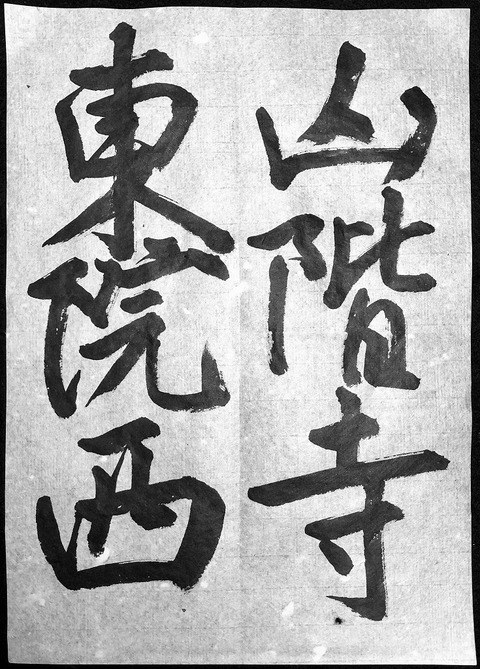 山階寺
東院西